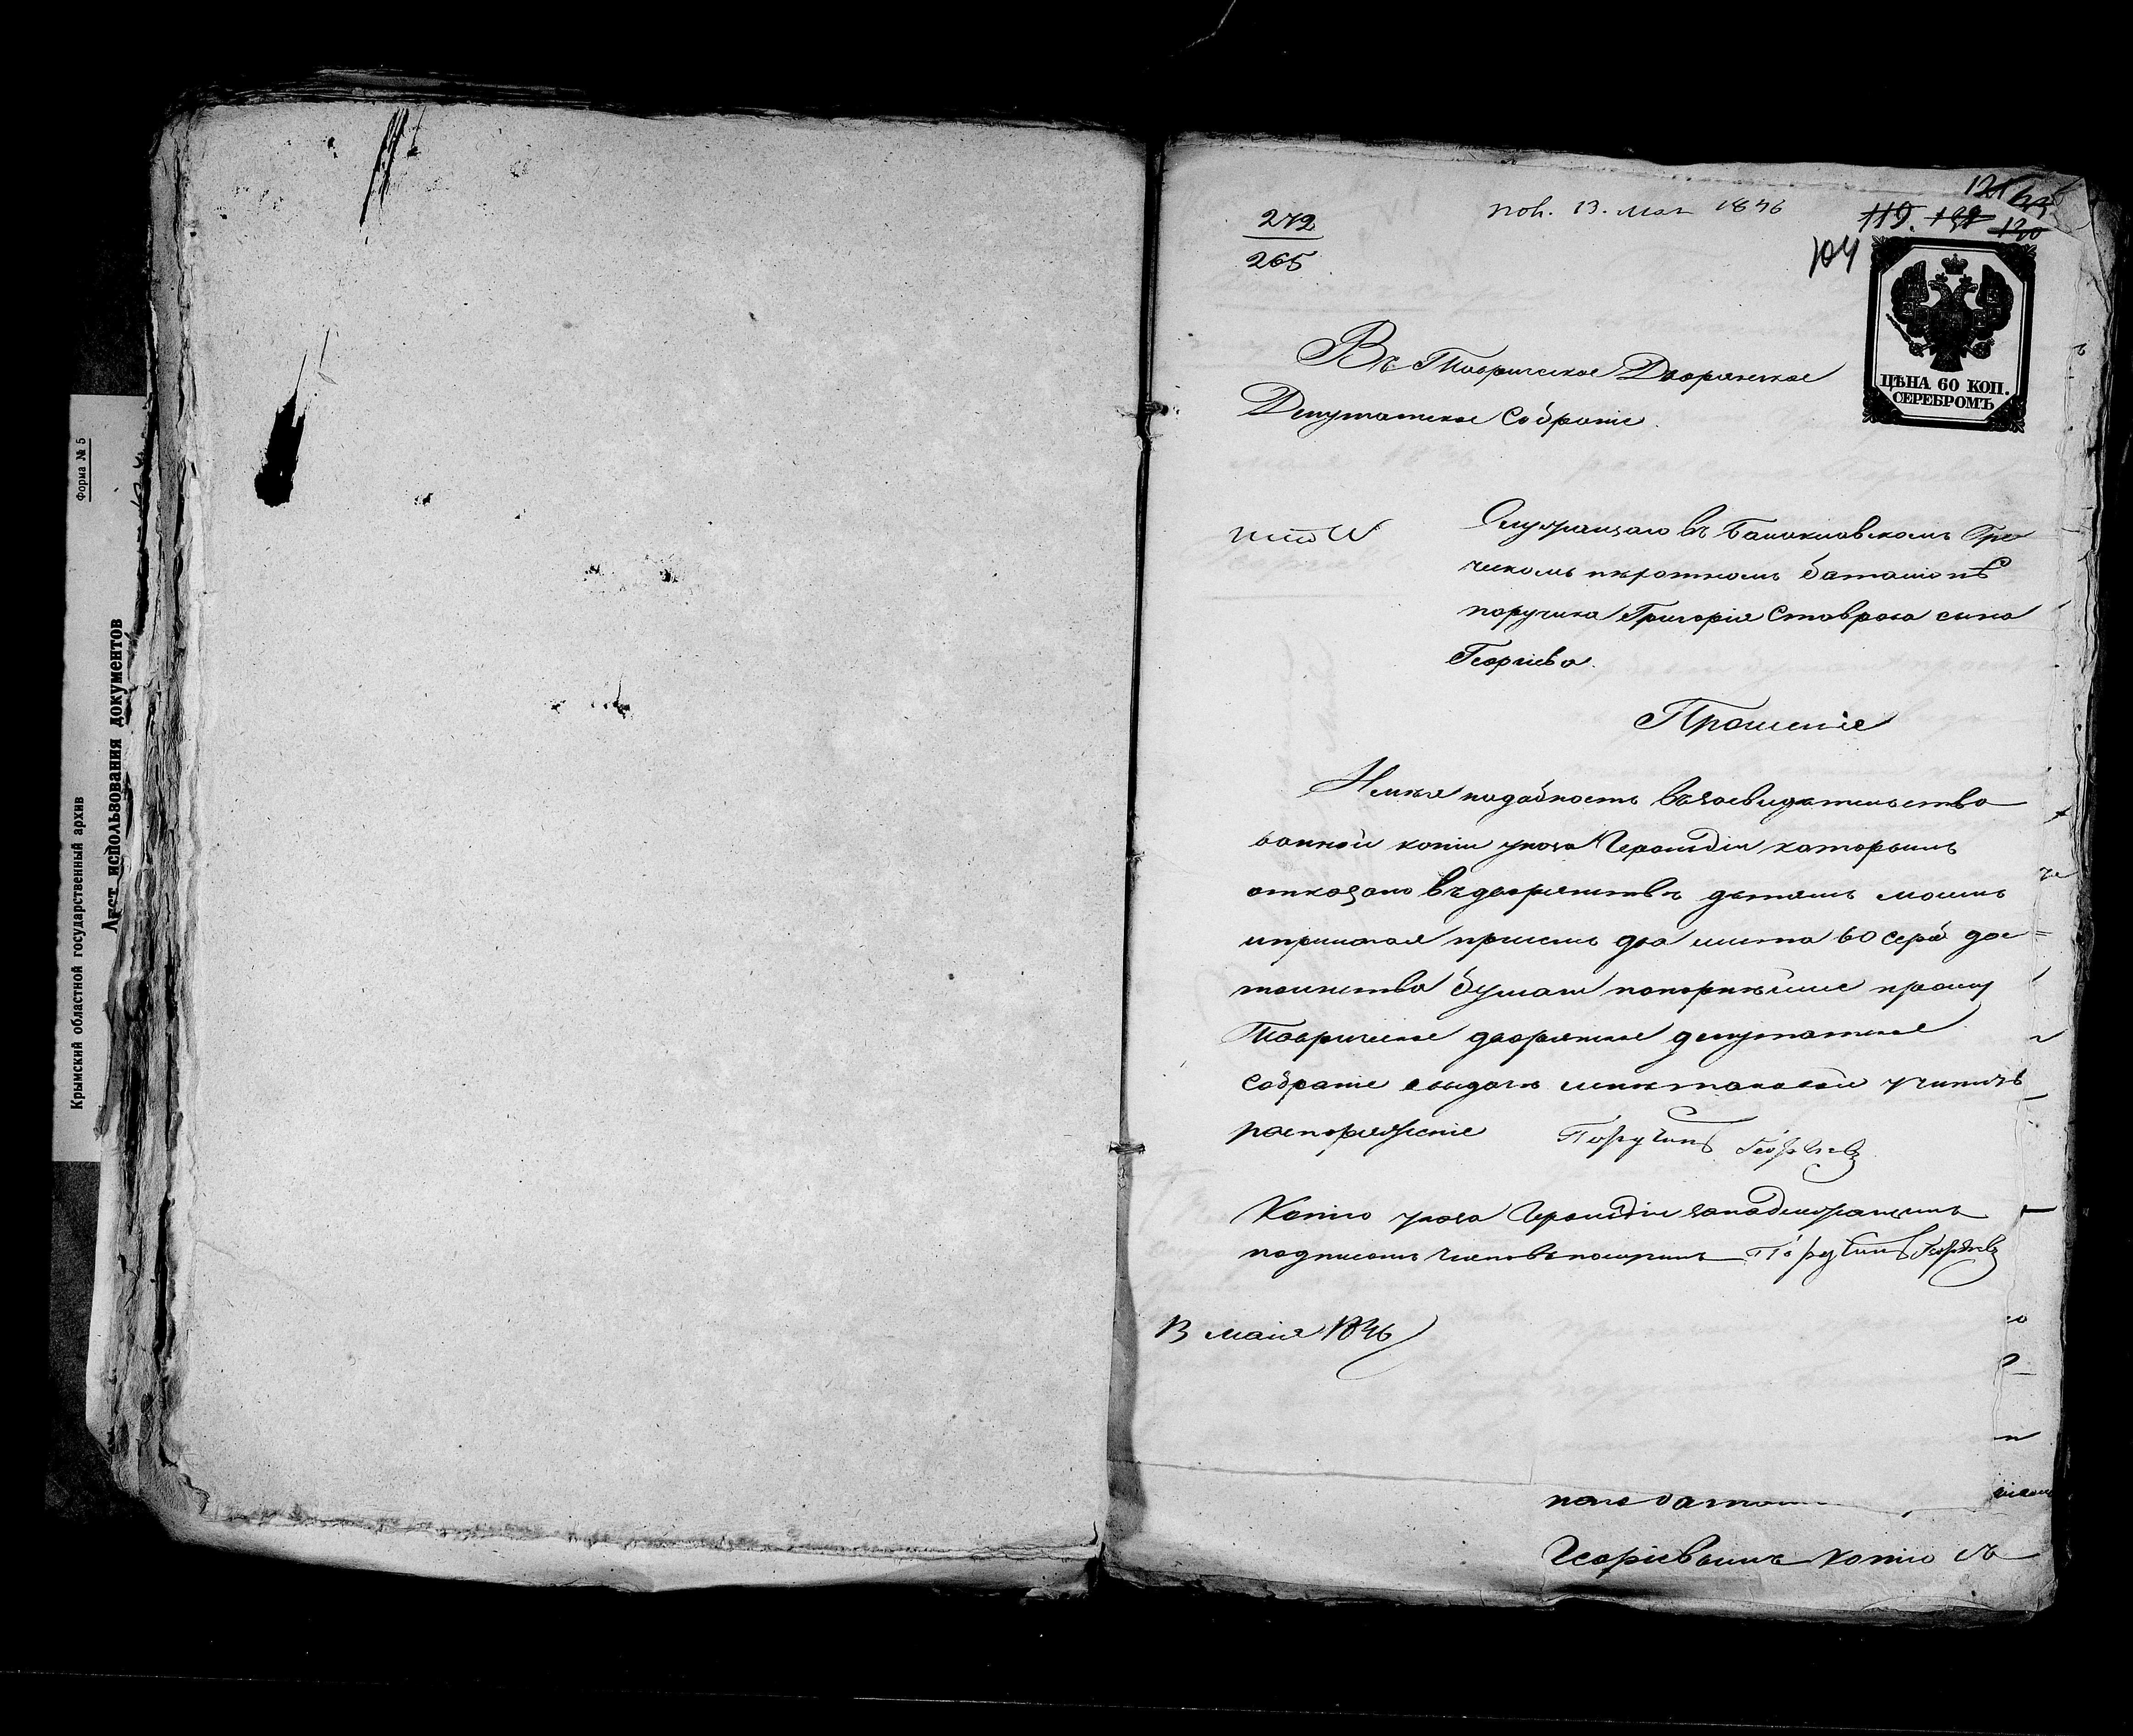 Форма № 5
Крымский областной государственный архив
Лист использования документов
272
265
пол. 13. мая 1846
119.
130
104
ЦѢНА 60 КОП.
СЕРЕБРОМЪ
Въ Таврическое Дворянское
Депутатское Собраніе.
Служащаго въ Балаклавскомъ Гре
ческомъ пѣхотномъ баталіонѣ
поручика Григорія Ставрова сына
Георгіева.
Прошеніе
Имѣя надобность въ засвидѣтельство
ванной копіи указа Герольдіи которымъ
отказано въ дворянствѣ дѣтямъ моимъ
и прилагая при семъ два листа 60 сереб дос=
тоинства бумаги покорнѣйше прошу
Таврическое дворянское депутатское
собраніе о выдачѣ мнѣ таковой учинить
распоряженіе Поручикъ Георгіевъ
Копію указа Герольдіи за надлежащимъ
подписомъ членовъ получилъ Поручикъ Георгіевъ
13 маія 1846
Георгіевымъ копію съ